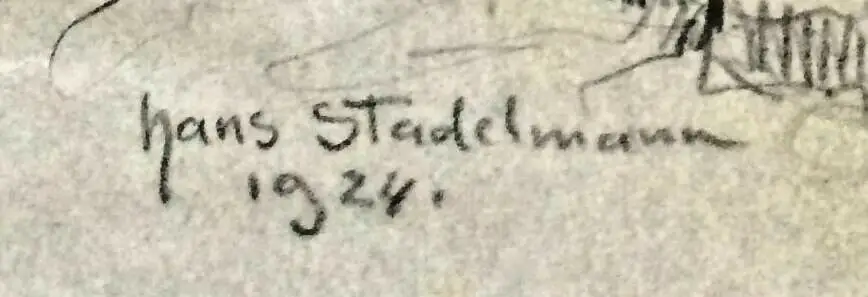 Hans Stadelmann
1924.